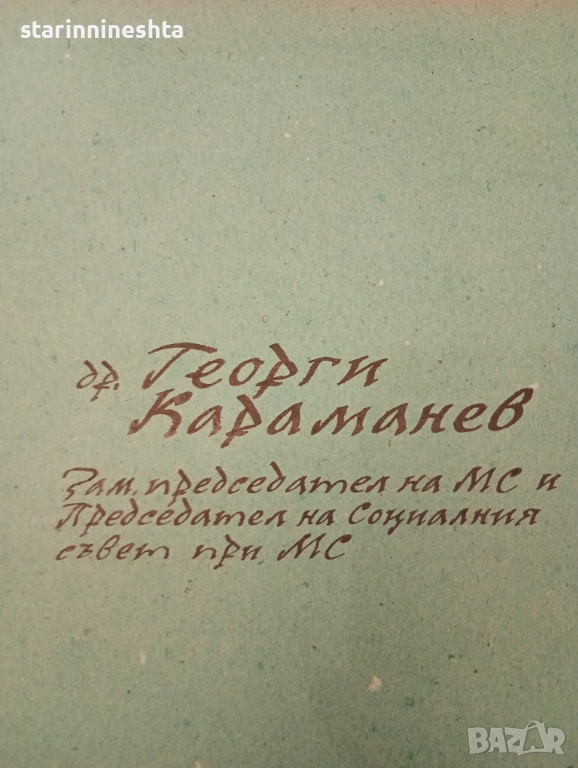 starinnineshta
др. Георги
Караманев
Зам. председател на МС и
Председател на Социалния
съвет при МС
BAZAR